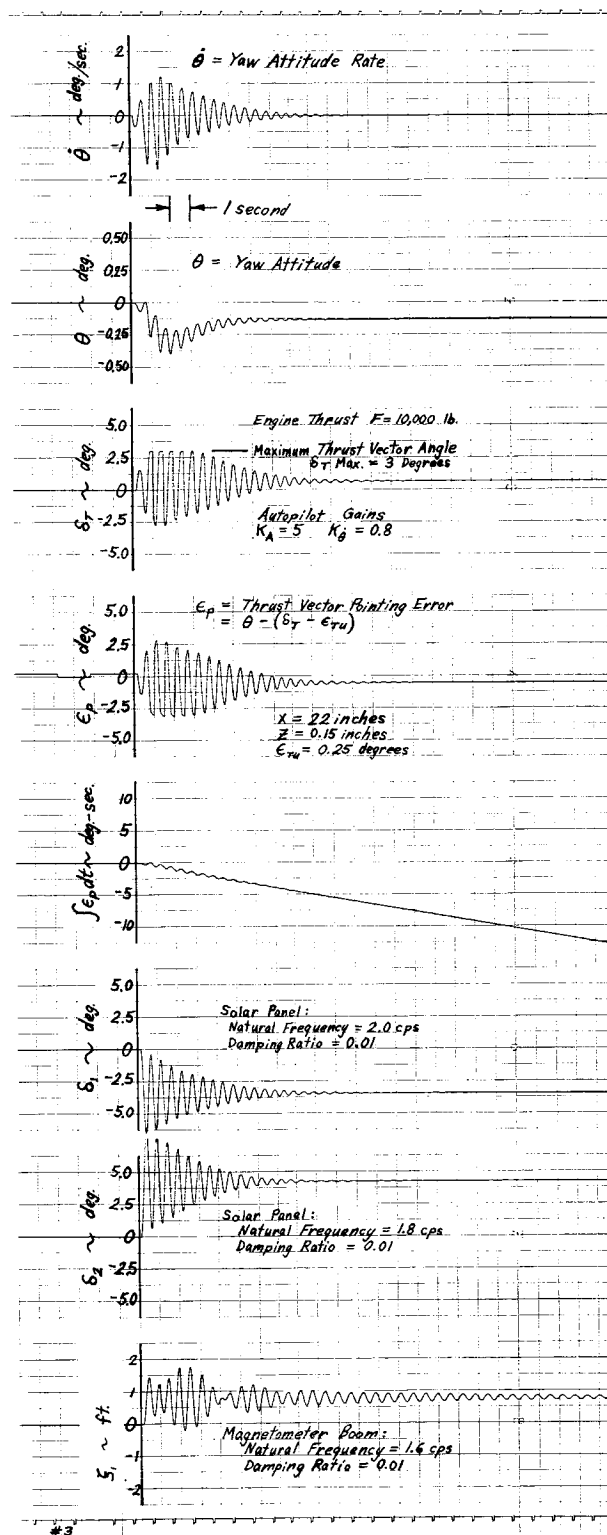 2
1
0
-1
-2
θ̇ ~ deg/sec.
θ̇ = Yaw Attitude Rate
1 second
0.50
0.25
0
-0.25
-0.50
θ ~ deg.
θ = Yaw Attitude
5.0
2.5
0
-2.5
-5.0
δT ~ deg.
Engine Thrust F = 10,000 lb.
Maximum Thrust Vector Angle
δT Max. = 3 Degrees
Autopilot Gains
KA = 5 Kθ̇ = 0.8
5.0
2.5
0
-2.5
-5.0
εp ~ deg.
εp = Thrust Vector Pointing Error
= θ - (δT - εTu)
X = 22 inches
Z = 0.15 inches
εTu = 0.25 degrees
10
5
0
-5
-10
∫εp dt ~ deg-sec.
5.0
2.5
0
-2.5
-5.0
δ1 ~ deg.
Solar Panel:
Natural Frequency = 2.0 cps
Damping Ratio = 0.01
5.0
2.5
0
-2.5
-5.0
δ2 ~ deg.
Solar Panel:
Natural Frequency = 1.8 cps
Damping Ratio = 0.01
2
1
0
-1
-2
ξ1 ~ ft.
Magnetometer Boom:
Natural Frequency = 1.6 cps
Damping Ratio = 0.01
#3